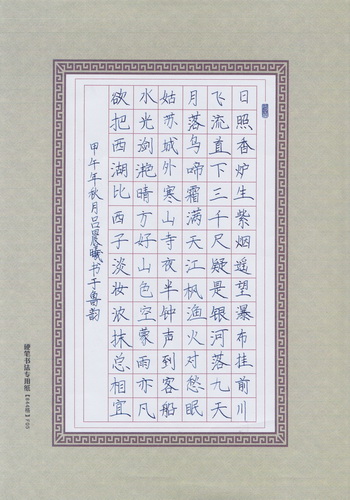 日照香炉生紫烟遥望瀑布挂前川
飞流直下三千尺疑是银河落九天
月落乌啼霜满天江枫渔火对愁眠
姑苏城外寒山寺夜半钟声到客船
水光泐滟晴方好山色空蒙雨亦凡
欲把西湖比西子淡妆浓抹总相宜
甲午年秋月吕晨曦书于鲁韵
硬笔书法专用纸【84格】P05